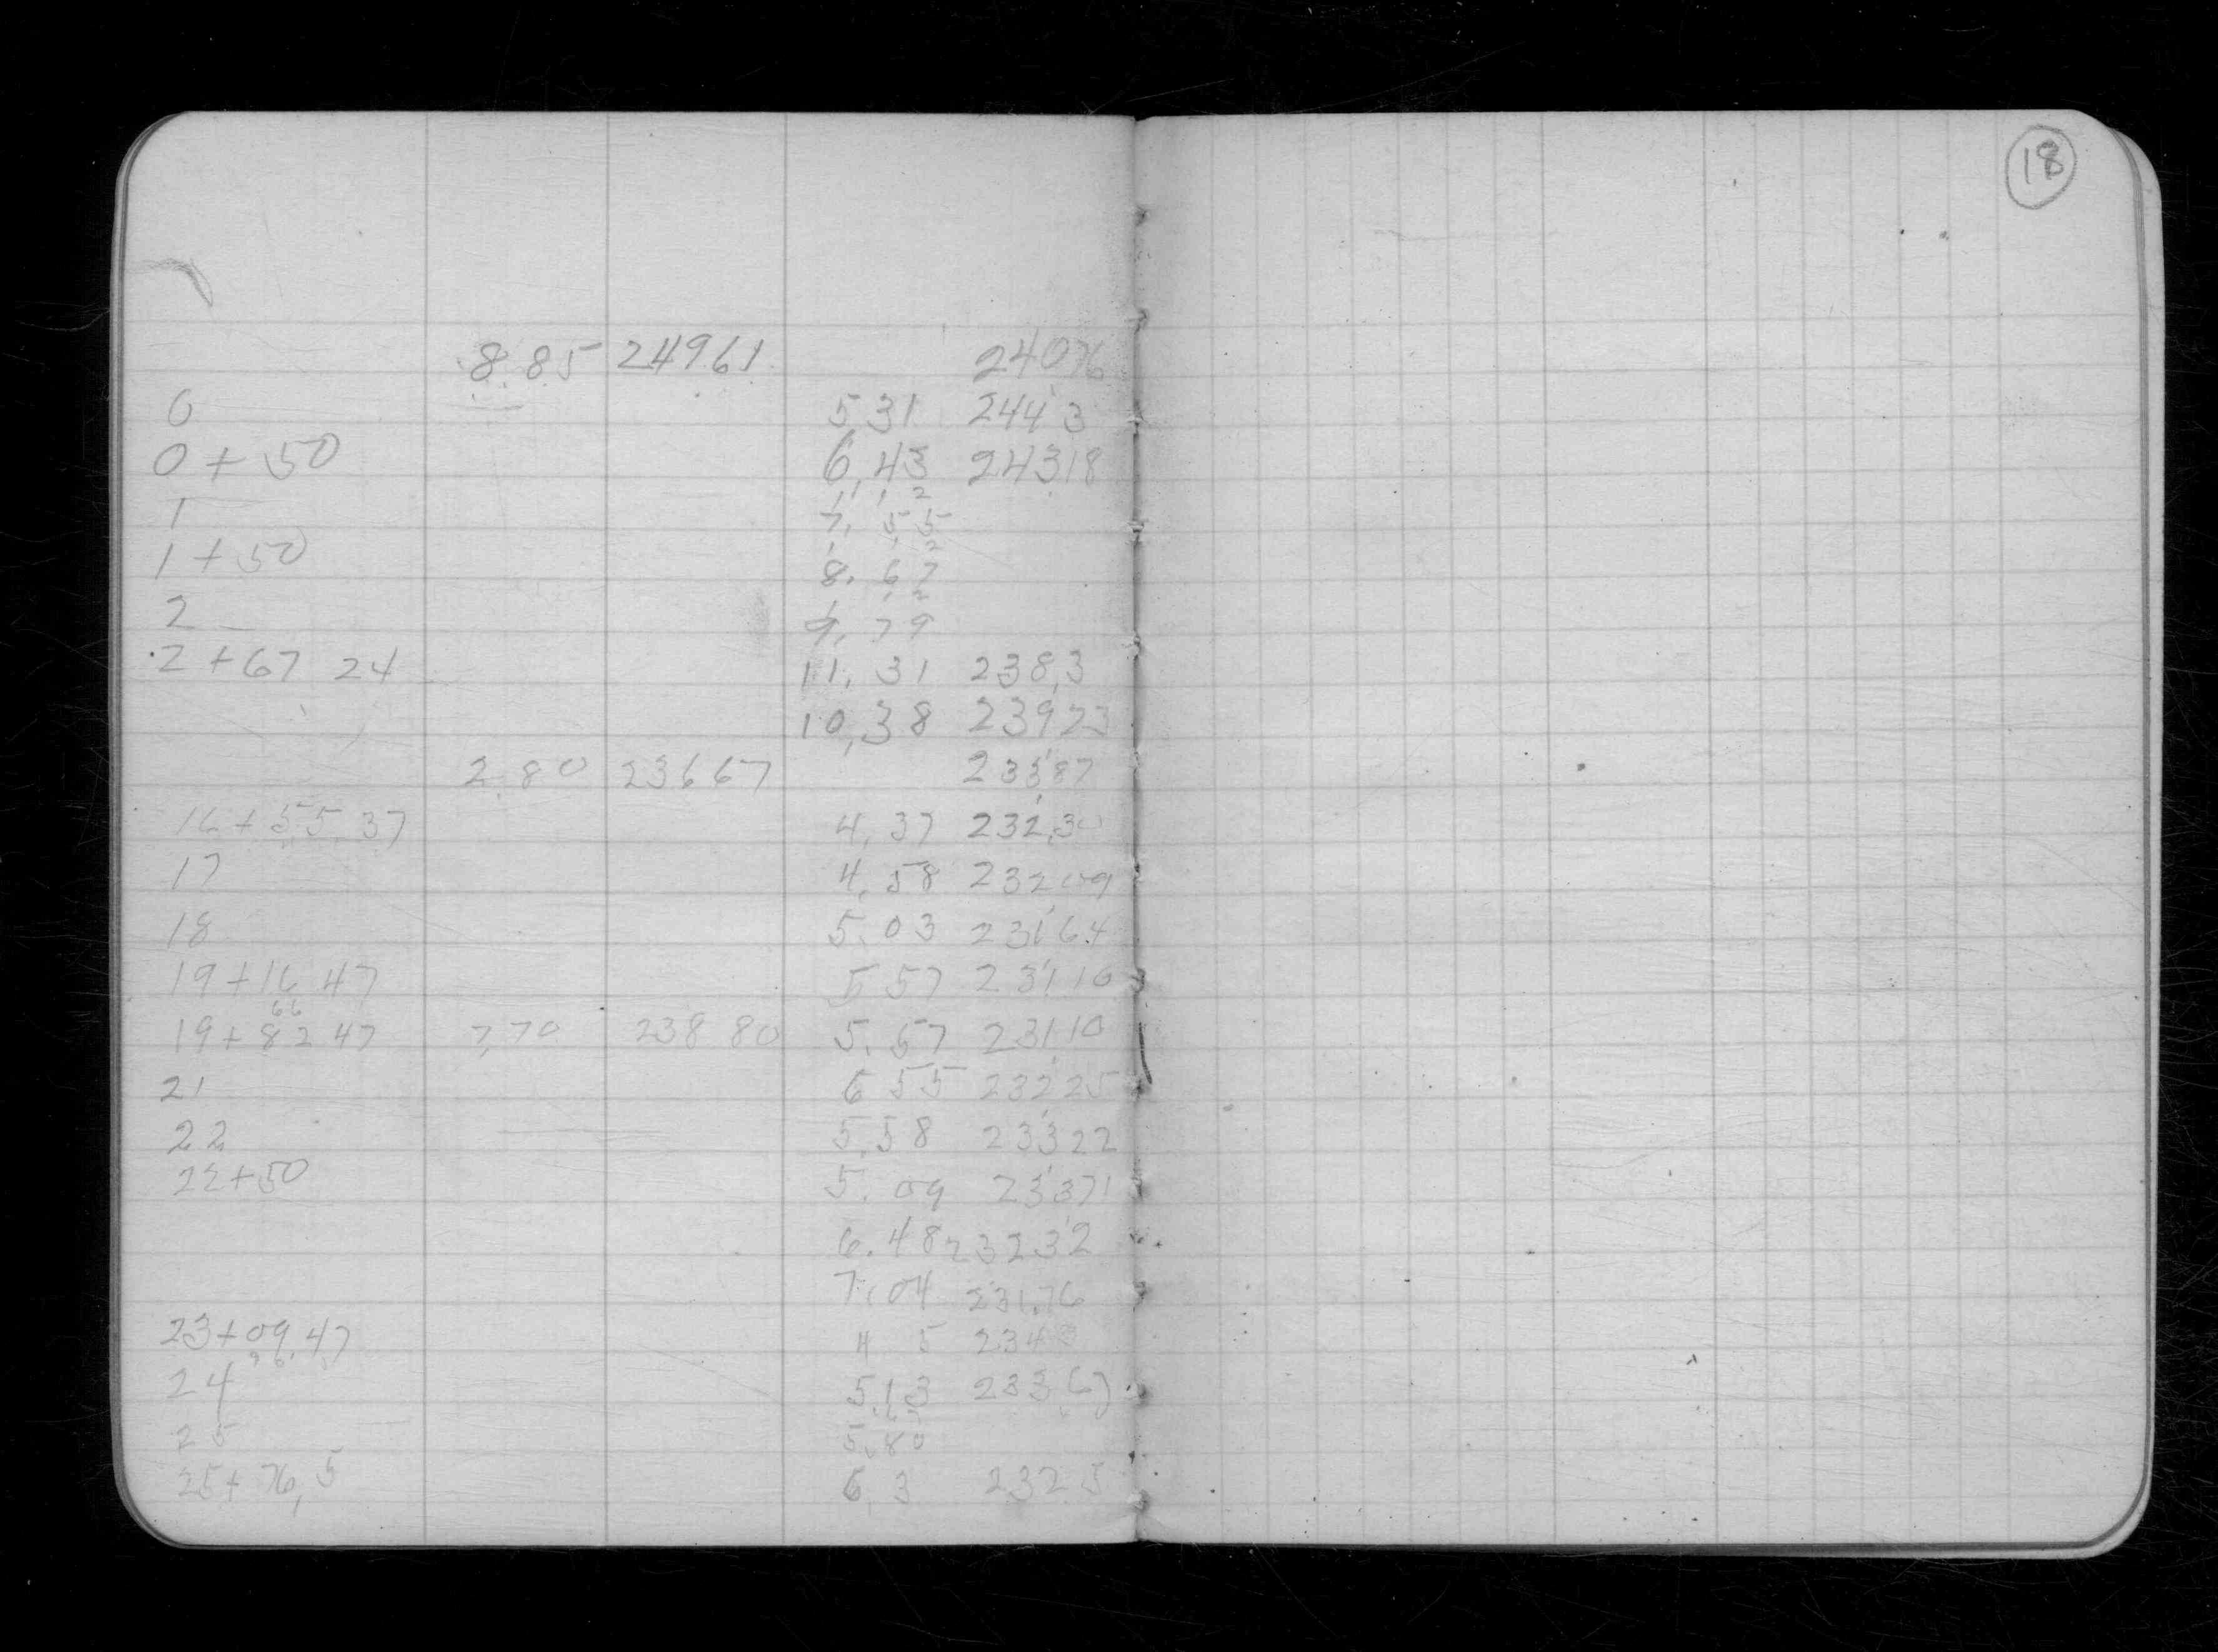 18
8.85 24961 24076
0 5 31 244 3
0 + 50 6,43 24318
1 1 2
1 7. 55
1 2
1 + 50 8. 67
1 2
2 9. 79
2 + 67 24 11. 31 238,3
10,38 23923
2.80 23667 23387
16 + 55.37 4,37 232,30
17 4.58 23209
18 5.03 23164
19 + 16 47 5 57 23110
66
19 + 82 47 7,70 238 80 5.57 23110
21 6 55 23225
22 5.58 23322
22+50 5. 09 23371
6.48 23232
7.04 231.76
23+09.47 4 5 234
24 5.13 233 67
25 5.80
25+ 76,5 6,3 232 5